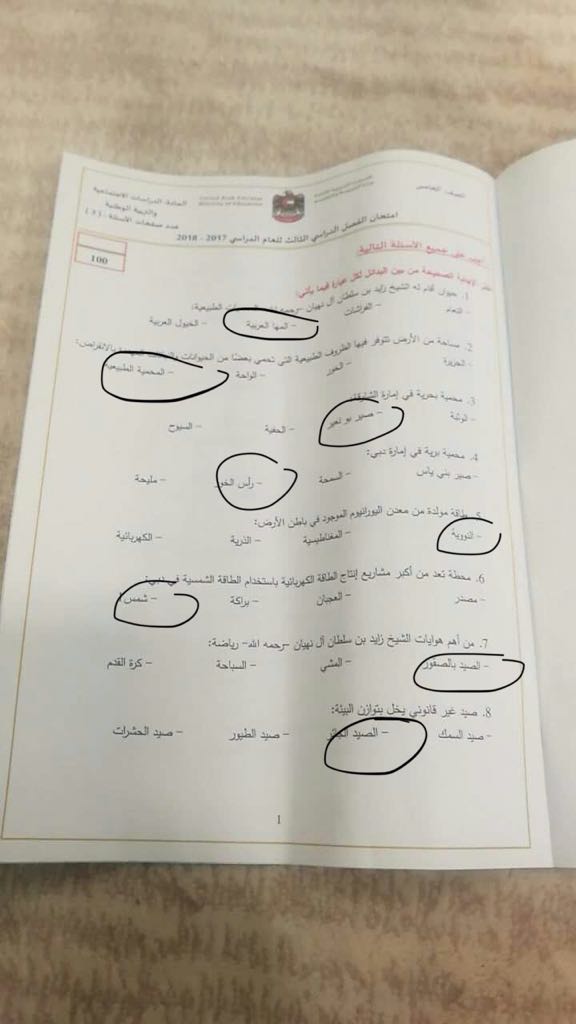 الصف الخامس
United Arab Emirates
Ministry of Education
المادة: الدراسات الاجتماعية
والتربية الوطنية
عدد صفحات الأسئلة: ( 3 )
امتحان الفصل الدراسي الثالث للعام الدراسي 2017 - 2018
100
أجب على جميع الأسئلة التالية:
الإجابة الصحيحة من بين البدائل لكل عبارة فيما يأتي:
1. حيوان قدم له الشيخ زايد بن سلطان آل نهيان -رحمه الطبيعية:
- النعام - الفراشات - المها العربية - الخيول العربية
2. مساحة من الأرض تتوفر فيها الظروف الطبيعية التي تحمي بعضًا من الحيوانات بالانقراض:
- الجزيرة - الخور - الواحة - المحمية الطبيعية
3. محمية بحرية في إمارة الشارقة:
- الوثبة - صير بو نعير - الحفية - السيوح
4. محمية برية في إمارة دبي:
- صير بني ياس - السمحة - رأس الخور - مليحة
5. طاقة مولدة من معدن اليورانيوم الموجود في باطن الأرض:
- المغناطيسية - الذرية - الكهربائية
6. محطة تعد من أكبر مشاريع إنتاج الطاقة الكهربائية باستخدام الطاقة الشمسية في
- مصدر - العجبان - براكة - شمس
7. من أهم هوايات الشيخ زايد بن سلطان آل نهيان -رحمه الله- رياضة:
- الصيد بالصقور - المشي - السباحة - كرة القدم
8. صيد غير قانوني يخل بتوازن البيئة:
- صيد السمك - الصيد الجائر - صيد الطيور - صيد الحشرات
1